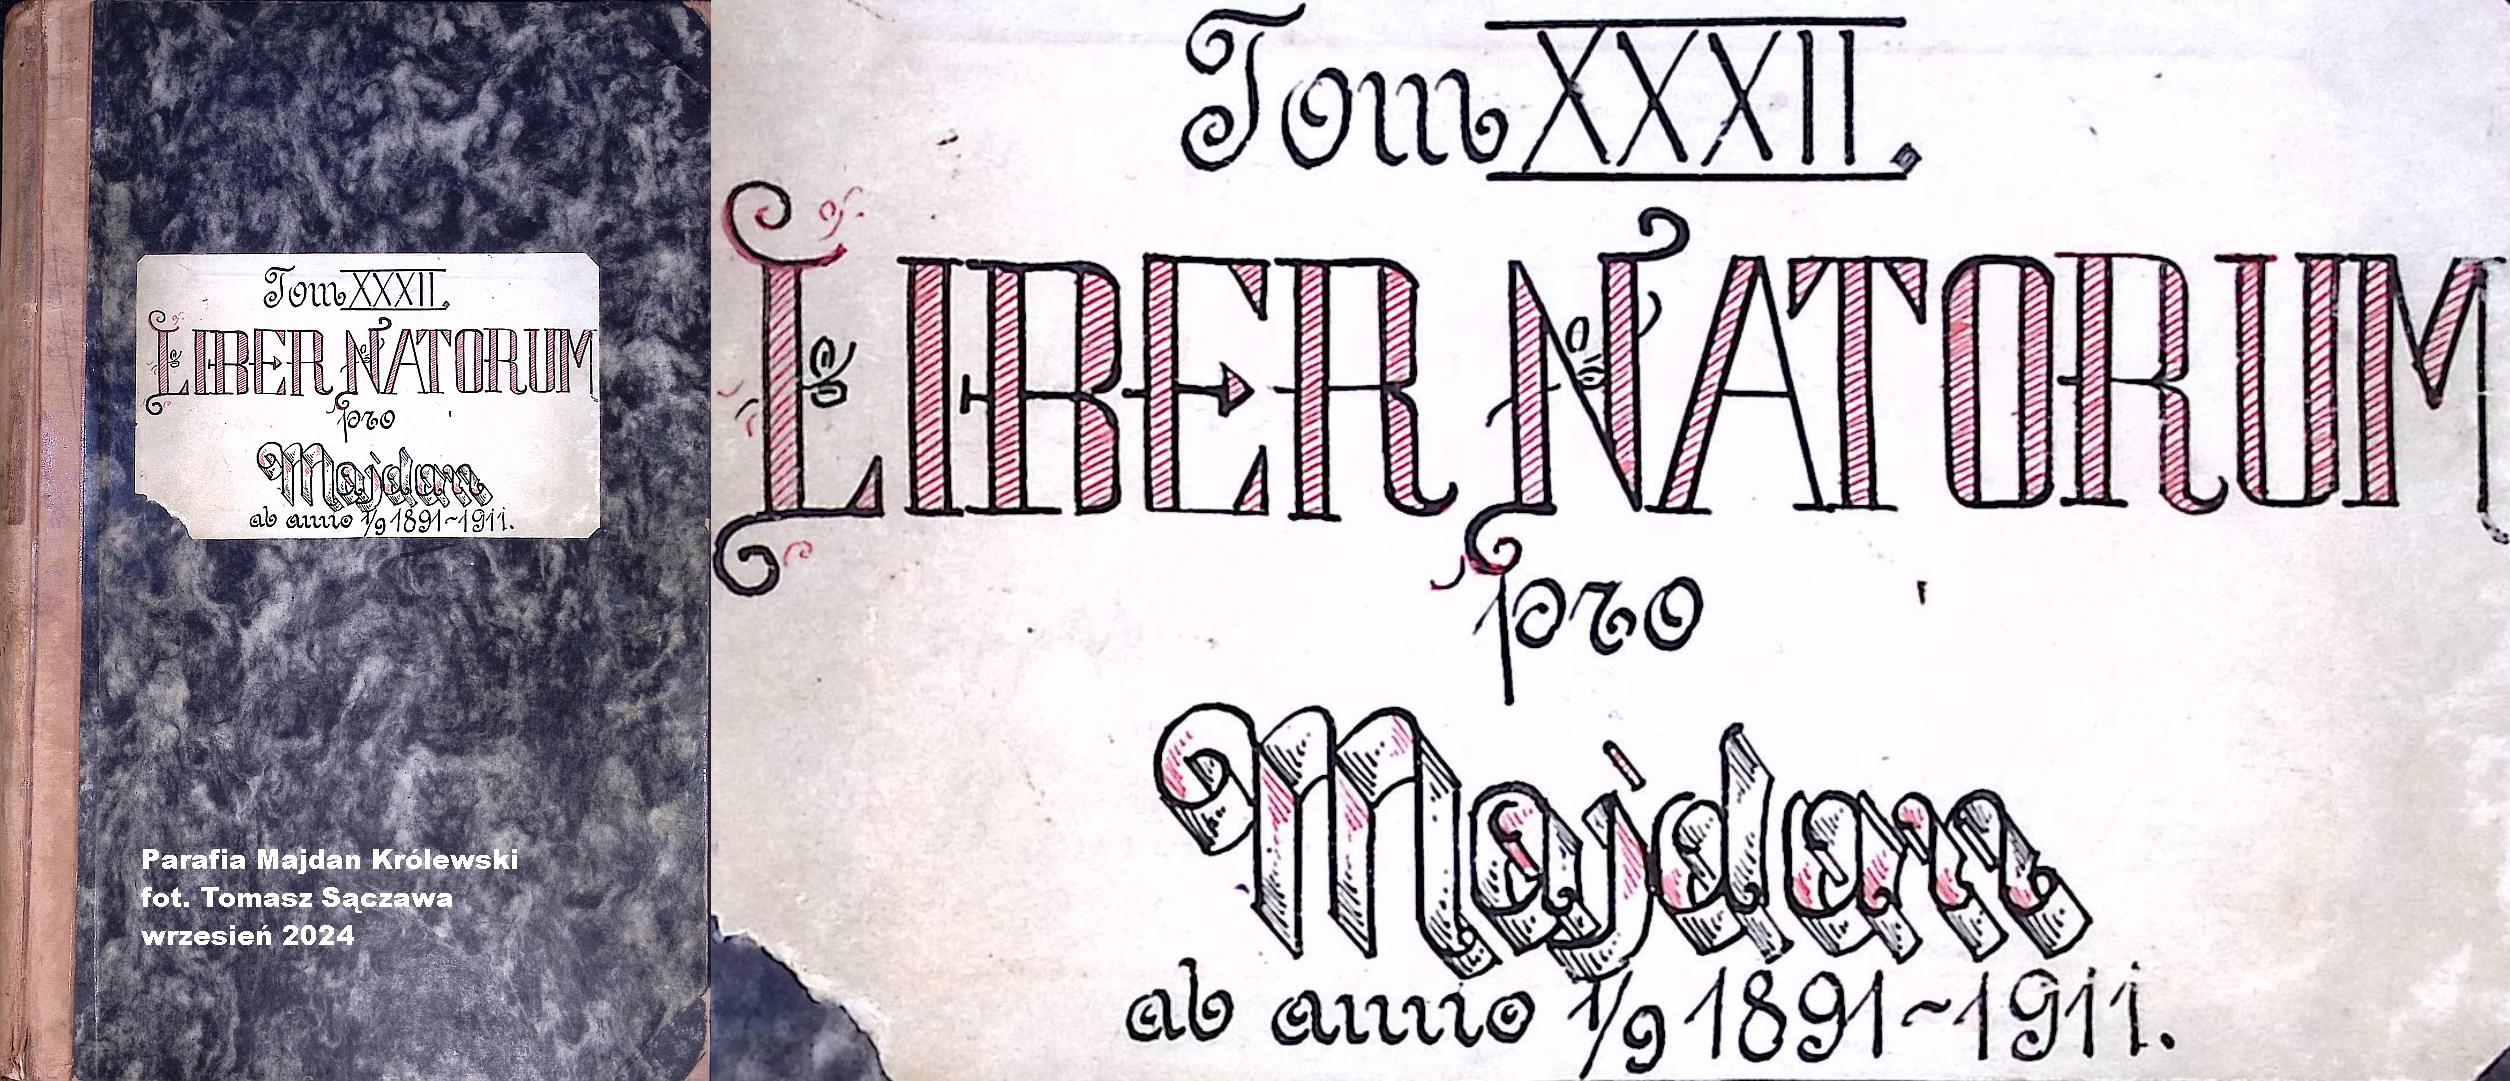 Tom XXXII.
LIBER NATORUM
pro
Majdan
ab anno 1/9 1891~1911.
Parafia Majdan Królewski
fot. Tomasz Sączawa
wrzesień 2024
Tom XXXII.
LIBER NATORUM
pro
Majdan
ab anno 1/9 1891~1911.